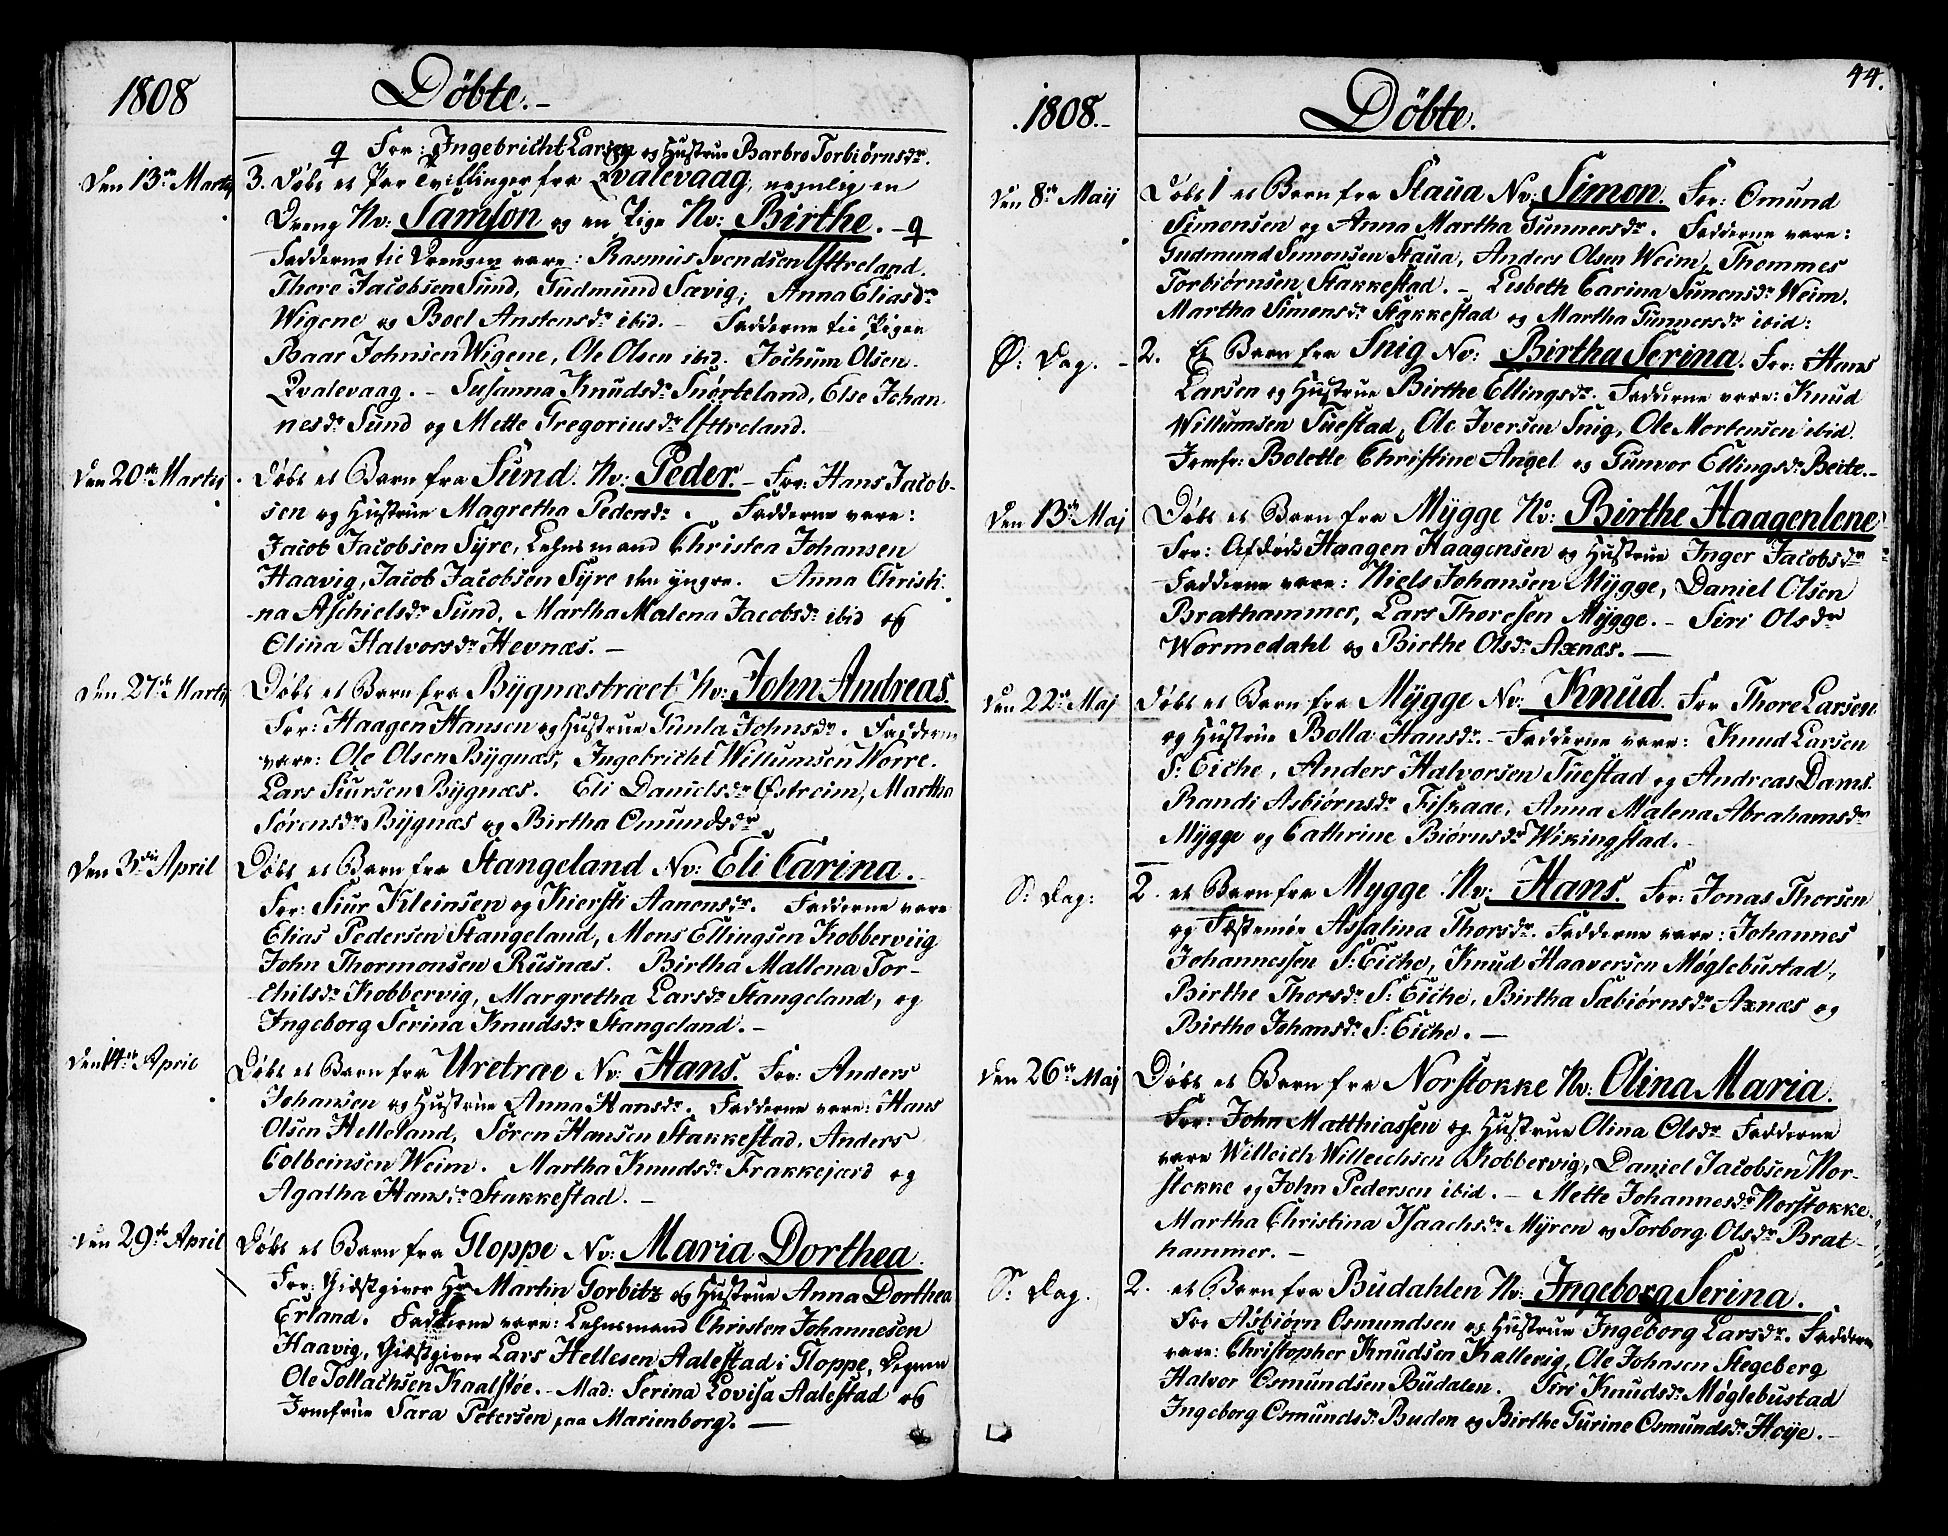 1808
Döbte.
q For: Ingebricht Larsen og Hustrue Barbro Torbiørnsdr.
Den 13de Martij
3. Döbt et Par Tvillinger fra Qvalevaag, nemlig en
Dreng Nv: Samson og en Pige Nv: Birthe. - q
Fadderne til Drengen vare: Rasmus Svendsen Ytreland.
Thore Jacobsen Sund, Gudmund Sævig; Anna Eliasdr
Wigene og Boel Anstensdr ibid. - Fadderne til Pigen
Baar Johnsen Wigene, Ole Olsen ibid. Jochum Olsen
Qvalevaag. - Susanna Knudsdr Snørteland, Else Johan
nesdr Sund og Mette Gregoriusdr Yttreland.
Den 20de Martij
Döbt et Barn fra Sund. Nv: Peder. - For: Hans Jacob-
sen og Hustrue Magretha Pedersdr. Fadderne vare:
Jacob Jacobsen Syre, Lehnsmand Christen Johansen
Haavig, Jacob Jacobsen Syre den yngre. Anna Christi-
na Aschielsdr Sund, Martha Malena Jacobsdr ibid og
Elina Halvorsdr Hevnæs. -
Den 27de Martij
Döbt et Barn fra Bÿgnæstræet Nv: John Andreas.
For: Haagen Hansen og Hustrue Gunla Johnsdr. Fadderne
vare: Ole Olsen Bÿgnæs, Ingebricht Willumsen Worre.
Lars Siursen Bÿgnæs. Eli Danielsdr Østreim, Martha
Sørensdr Bÿgnæs og Birtha Omundsdr
Den 3die April
Döbt et Barn fra Stangeland Nv: Eli Carina.
For: Siur Kleinsen og Kiersti Aanensdr. Fadderne vare
Elias Pedersen Stangeland, Mons Ellingsen Kobberviig
John Thormonsen Rusnæs. Birtha Mallena Tor-
chilsdr Kobbervig, Margretha Larsdr Stangeland, og
Ingeborg Serina Knudsdr Stangeland. -
Den 14de April
Döbt et Barn fra Uretræe Nv: Hans. For: Anders
Johansen og Hustrue Anna Hansdr. Fadderne vare: Hans
Olsen Helleland, Søren Hansen Stakkestad, Anders
Colbeinsen Weim. Martha Knudsdr Frakkejerd og
Agatha Hansdr Stakkestad. -
Den 29de April
Döbt et Barn fra Gloppe Nv: Maria Dorthea.
For: Giæstgiver Hr Martin Gorbitz og Hustrue Anna Dorthea
Erland. Fadderne vare: Lehnsmand Christen Johannesen
Haavig, Giæstgiver Lars Hellesen Aalestad i Gloppe, Degnen
Ole Tollachsen Kaalstøe. - Mad: Serina Lovisa Aalestad og
Jomfrue Sara Petersen paa Marienborg. -
44.
1808.
Döbte.
Den 8de Maij
Döbt 1 et Barn fra Staua Nv: Simon. For: Omund
Simonsen og Anna Martha Gunnersdr. Fadderne vare:
Gudmund Simonsen Staua, Anders Olsen Weim, Thommes
Torbiørnsen Stakkestad. - Lisbeth Carina Simensdr Weim.
Martha Simonsdr Stakkestad og Martha Gunnersdr ibid:
S: Dag. -
2. Et Barn fra Snig Nv: Birtha Serina. For: Hans
Larsen og Hustrue Birthe Ellingsdr. Fadderne vare: Knud
Willumsen Tuestad, Ole Iversen Snig, Ole Mortensen ibid.
Jomfr: Bolette Christine Angel og Gunvor Ellingsdr Beite. -
Den 13de Maj
Döbt et Barn fra Mÿgge Nv: Birthe Haagenlene
For: Afdøde Haagen Haagensen og Hustrue Inger Jacobsdr
Fadderne vare: Niels Johansen Mÿgge, Daniel Olsen
Brathammer, Lars Thoresen Mÿgge. - Siri Olsdr
Wormedahl og Birthe Olsdr Axnæs. -
Den 22de Maj
Döbt et Barn fra Mÿgge Nv: Knud. For Thore Larsen
og Hustrue Bolla Hansdr. - Fadderne vare: Knud Larsen
S: Eiche, Anders Halvorsen Tuestad og Andreas Dams.
Randi Asbiørnsdr Fiskaae, Anna Malena Abrahamsdr
Mÿgge og Cathrine Biørnsdr Wikingstad. -
S: Dag:
2. et Barn fra Mygge Nv: Hans. For: Jonas Thorsen
og Fæstemøe Assalina Thorsdr. Fadderne vare: Johannes
Johannessen S: Eiche, Knud Haaversen Møglebustad,
Birthe Thorsdr S: Eiche, Birtha Sæbiørnsdr Axnæs og
Birthe Johansdr S: Eiche. -
Den 26de Maj
Döbt et Barn fra Norstokke Nv: Olina Maria.
For: John Matthiassen og Hustrue Olina Olsdr Fadderne
vare Willeich Willeichsen Kobbervig, Daniel Jacobsen Nor-
stokke og John Pedersen ibid. - Mette Johannesdr Norstokke.
Martha Christina Isaachsdr Mÿren og Torborg Olsdr Brat-
hammer. -
S: Dag.
2. et Barn fra Budahlen Nv: Ingeborg Serina.
For Asbiørn Osmundsen og Hustrue Ingeborg Larsdr. Fadderne
vare: Christopher Knudsen Kallevig, Ole Johnsen Stegeberg
Halvor Osmundsen Budalen. Siri Knudsdr Møglebustad
Ingeborg Osmundsdr Buden og Birthe Gurine Osmundsdr Høÿe. -